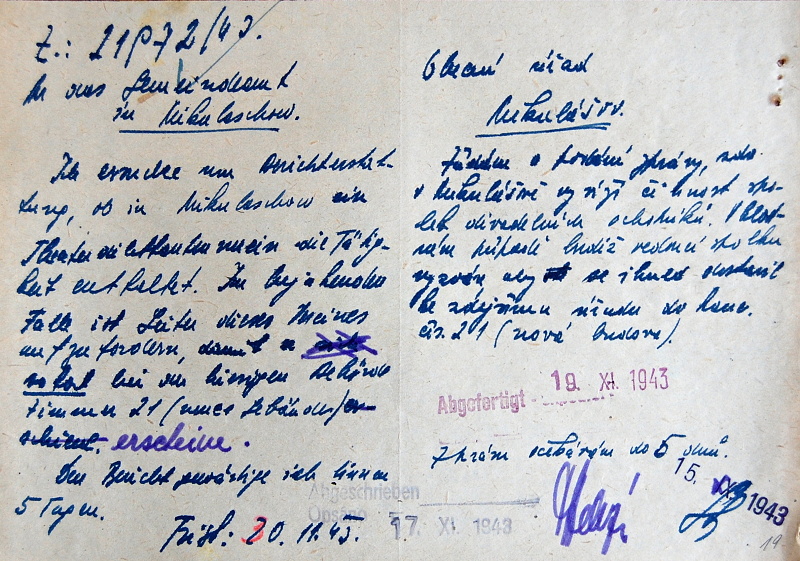 Z.: 21972/43.
An das Gemeindeamt
in Nikulaschow.
Ich ersuche um Berichterstat-
tung, ob in Nikulaschow ein
Theaterdilettantenverein die Tätig-
keit entfaltet. Im bejahenden
Falle ist Leiter dieses Vereines
aufzufordern, damit er
sofort bei der hiesigen Behörde
Zimmer 21 (neues Gebäude) er-
schient. erscheine.
Den Bericht gewärtige ich binnen
5 Tagen.
Frist: 20. 11. 43.
Abgeschrieben
Opsáno 17. XI. 1943
Obecní úřad
Mikulášov.
Žádám o podání zprávy, zda
v Mikulášově vyvíjí činnost spo-
lek divadelních ochotníků. V klad-
ném případě budiž vedoucí spolku
vyzván aby se ihned dostavil
ke zdejšímu úřadu do kanc.
čís. 21 (nová budova).
Abgefertigt 19. XI. 1943
Zprávu očekávám do 5 dnů.
15. 1943
19